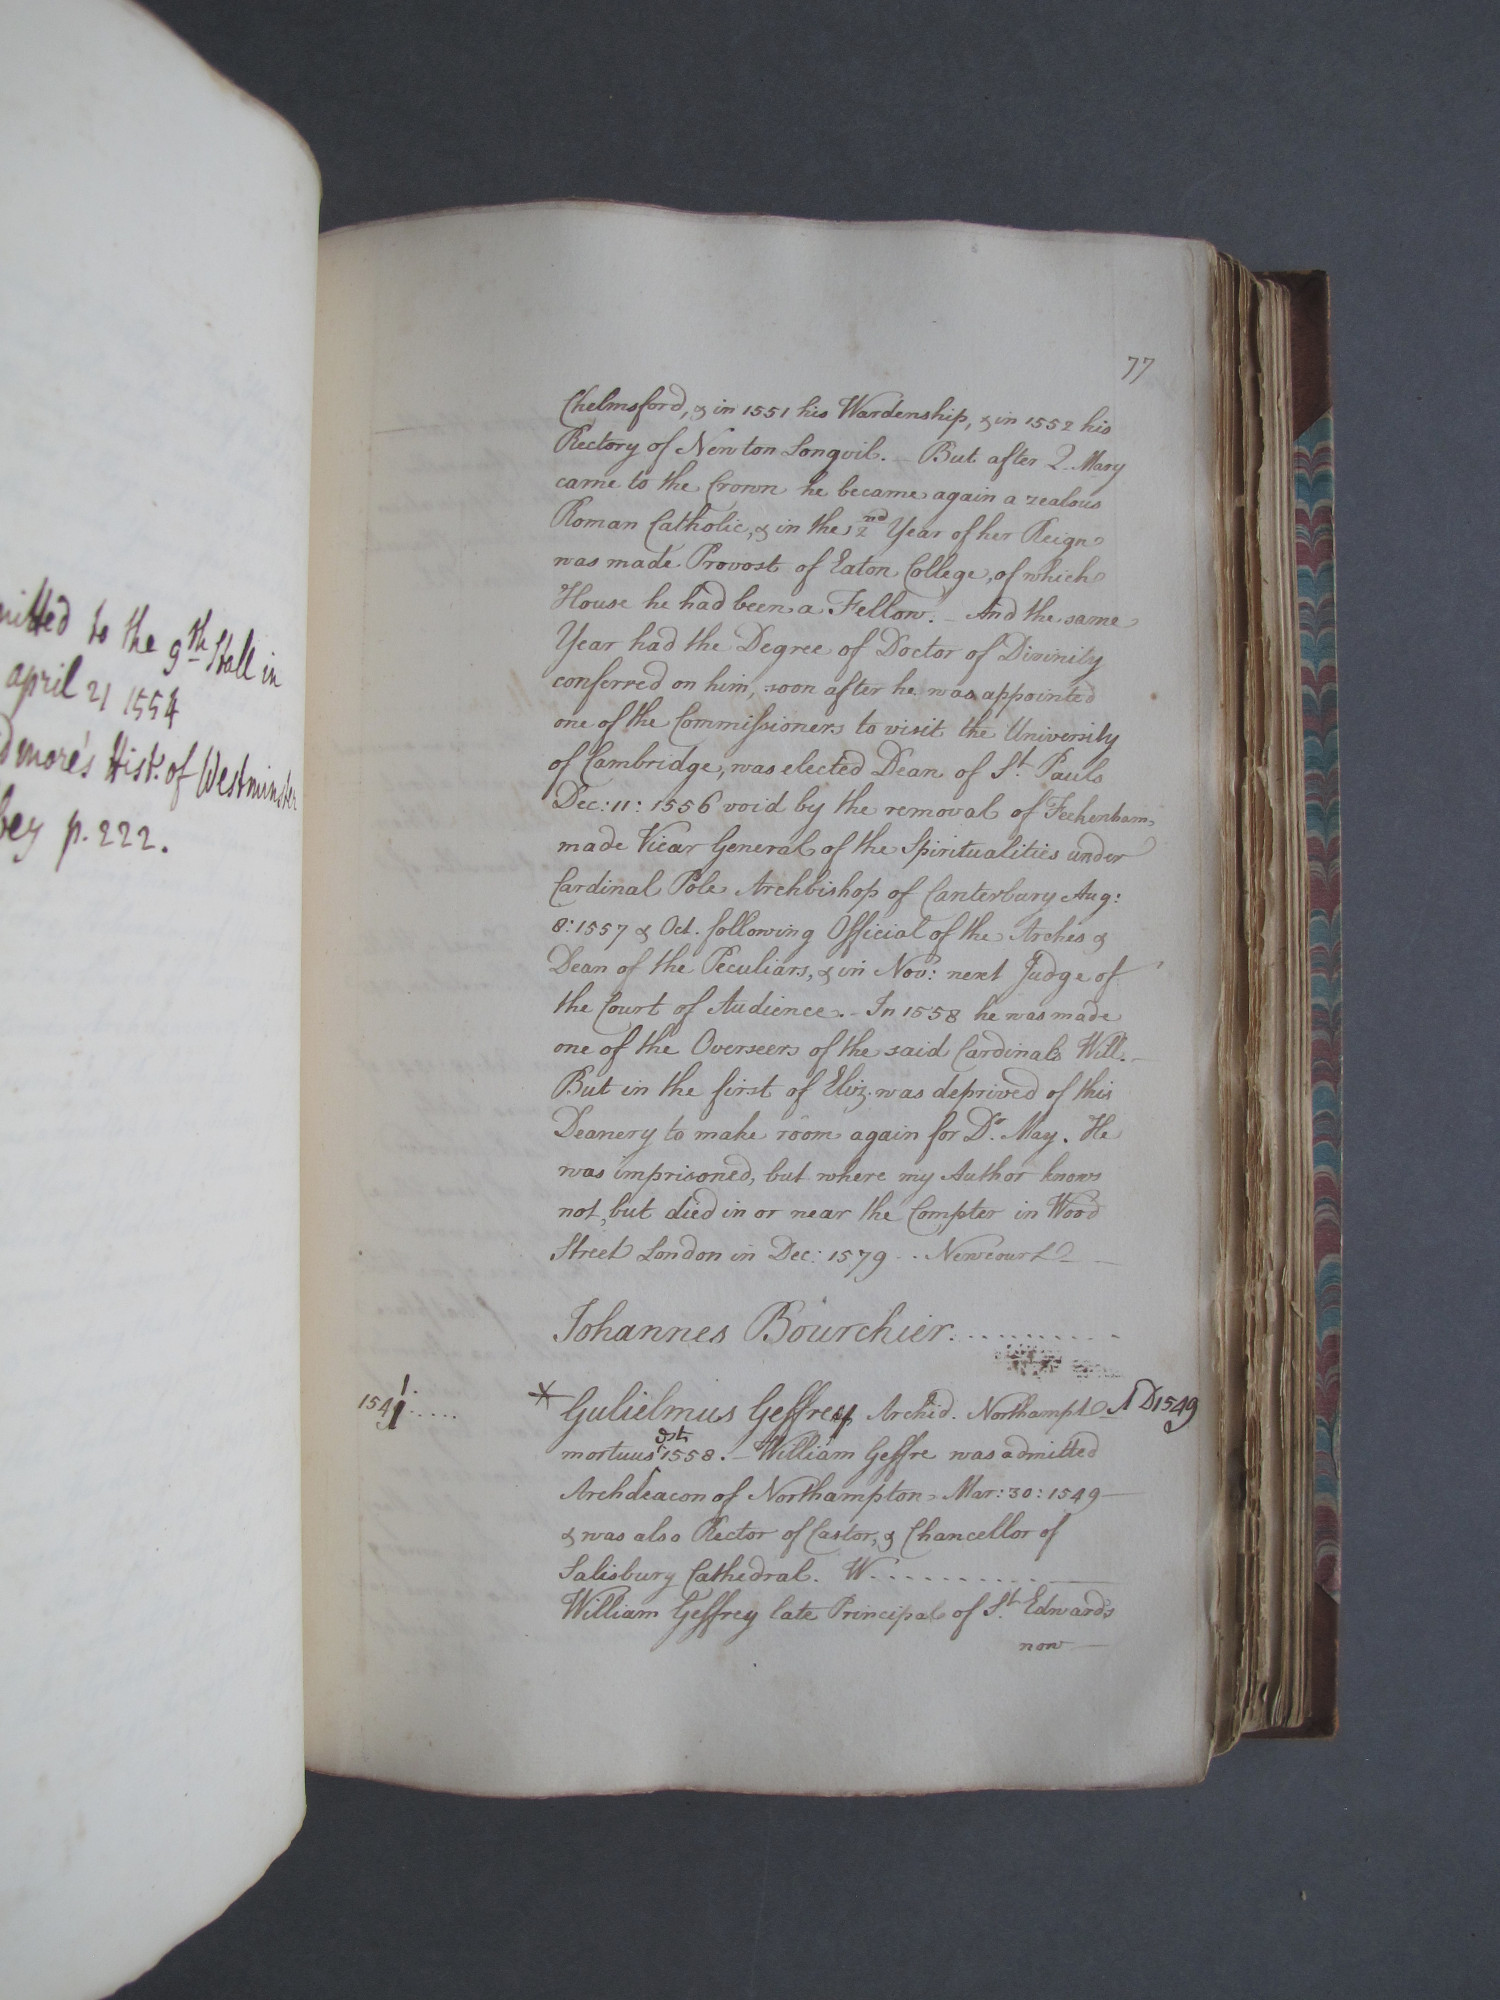 mitted to the 9th Stall in
april 21 1554
dmore's Hist. of Westminster
bey p. 222.
77
Chelmsford, & in 1551 his Wardenship, & in 1552 his
Rectory of Newton Longvil. – But after Q. Mary
came to the Crown he became again a zealous
Roman Catholic, & in the 2nd Year of her Reign
was made Provost of Eaton College, of which
House he had been a Fellow. – And the same
Year had the Degree of Doctor of Divinity
conferred on him, soon after he was appointed
one of the Commissioners to visit the University
of Cambridge, was elected Dean of St. Pauls
Dec: 11: 1556 void by the removal of Feckenham,
made Vicar General of the Spiritualities under
Cardinal Pole Archbishop of Canterbury Aug:
8: 1557 & Oct. following Official of the Arches &
Dean of the Peculiars, & in Nov: next Judge of
the Court of Audience. – In 1558 he was made
one of the Overseers of the said Cardinals Will. –
But in the first of Eliz. was deprived of this
Deanery to make room again for Dr. May. He
was imprisoned, but where my Author knows
not, but died in or near the Compter in Wood
Street London in Dec: 1579 . . Newcourt
Johannes Bourchier. . . . . . . . . . .
1541 : . . . . * Gulielmus Geffrey Archid. Northampt. AD 1549
mortuus est 1558. – William Geffre was admitted
Archdeacon of Northampton Mar: 30: 1549 –
& was also Rector of Castor, & Chancellor of
Salisbury Cathedral. W. . . . . . . . . . .
William Geffrey late Principal of St. Edward's
now –